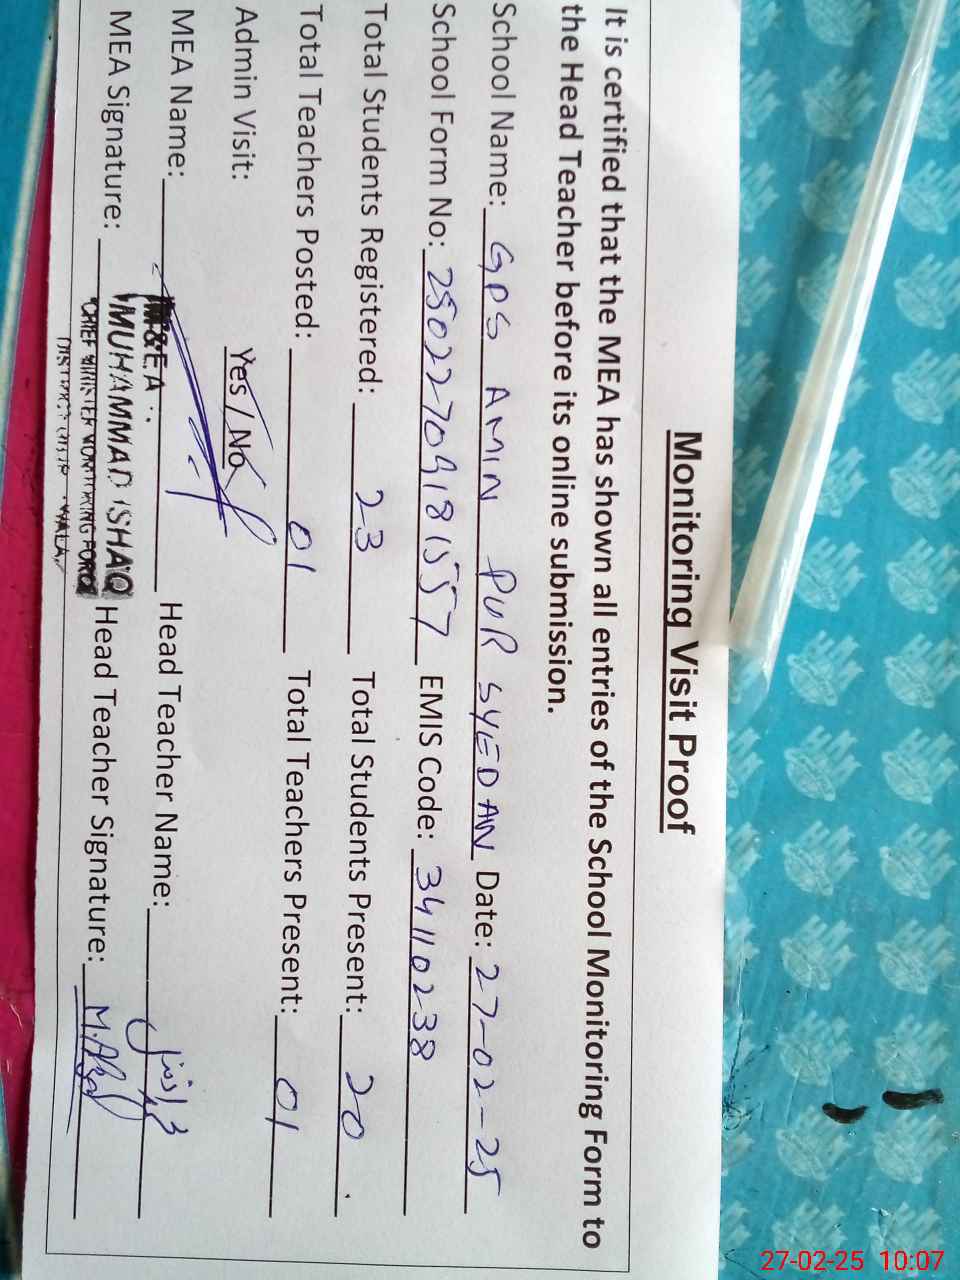 Monitoring Visit Proof
It is certified that the MEA has shown all entries of the School Monitoring Form to
the Head Teacher before its online submission.
School Name: GPS AMIN PUR SYEDAN Date: 27-02-25
School Form No: 25022709181557 EMIS Code: 34110238
Total Students Registered: 23 Total Students Present: 20
Total Teachers Posted: 01 Total Teachers Present: 01
Admin Visit: Yes / No
MEA Name: Head Teacher Name: محمد افضل
M&E.A
MEA Signature: MUHAMMAD ISHAQ Head Teacher Signature: M.Afzal
CHIEF MINISTER MONITORING FORCE
27-02-25 10:07